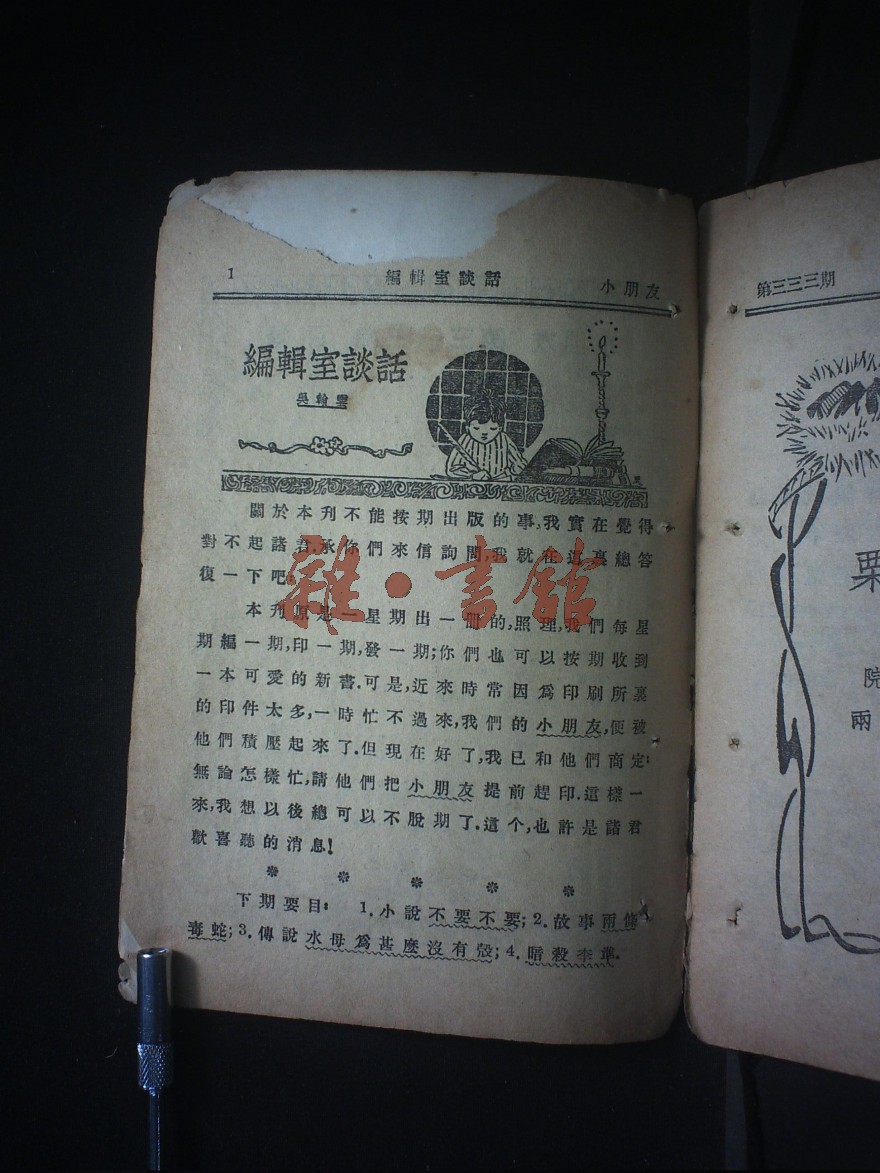 1 編輯室談話 小朋友
編輯室談話
吳翰雲
關於本刋不能按期出版的事,我實在覺得
對不起諸君.承你們來信詢問,我就在這裏總答
復一下吧:
本刋原是一星期出一冊的,照理,我們每星
期編一期,印一期,發一期;你們也可以按期收到
一本可愛的新書.可是,近來時常因爲印刷所裏
的印件太多,一時忙不過來,我們的小朋友,便被
他們積壓起來了.但現在好了,我已和他們商定:
無論怎樣忙,請他們把小朋友提前趕印.這樣一
來,我想以後總可以不脫期了.這个,也許是諸君
歡喜聽的消息!
下期要目: 1.小說不要不要;2.故事兩條
毒蛇;3.傳說水母爲甚麼沒有殼;4.暗殺李準.
雜·書館
第三三三期
栗
院
兩